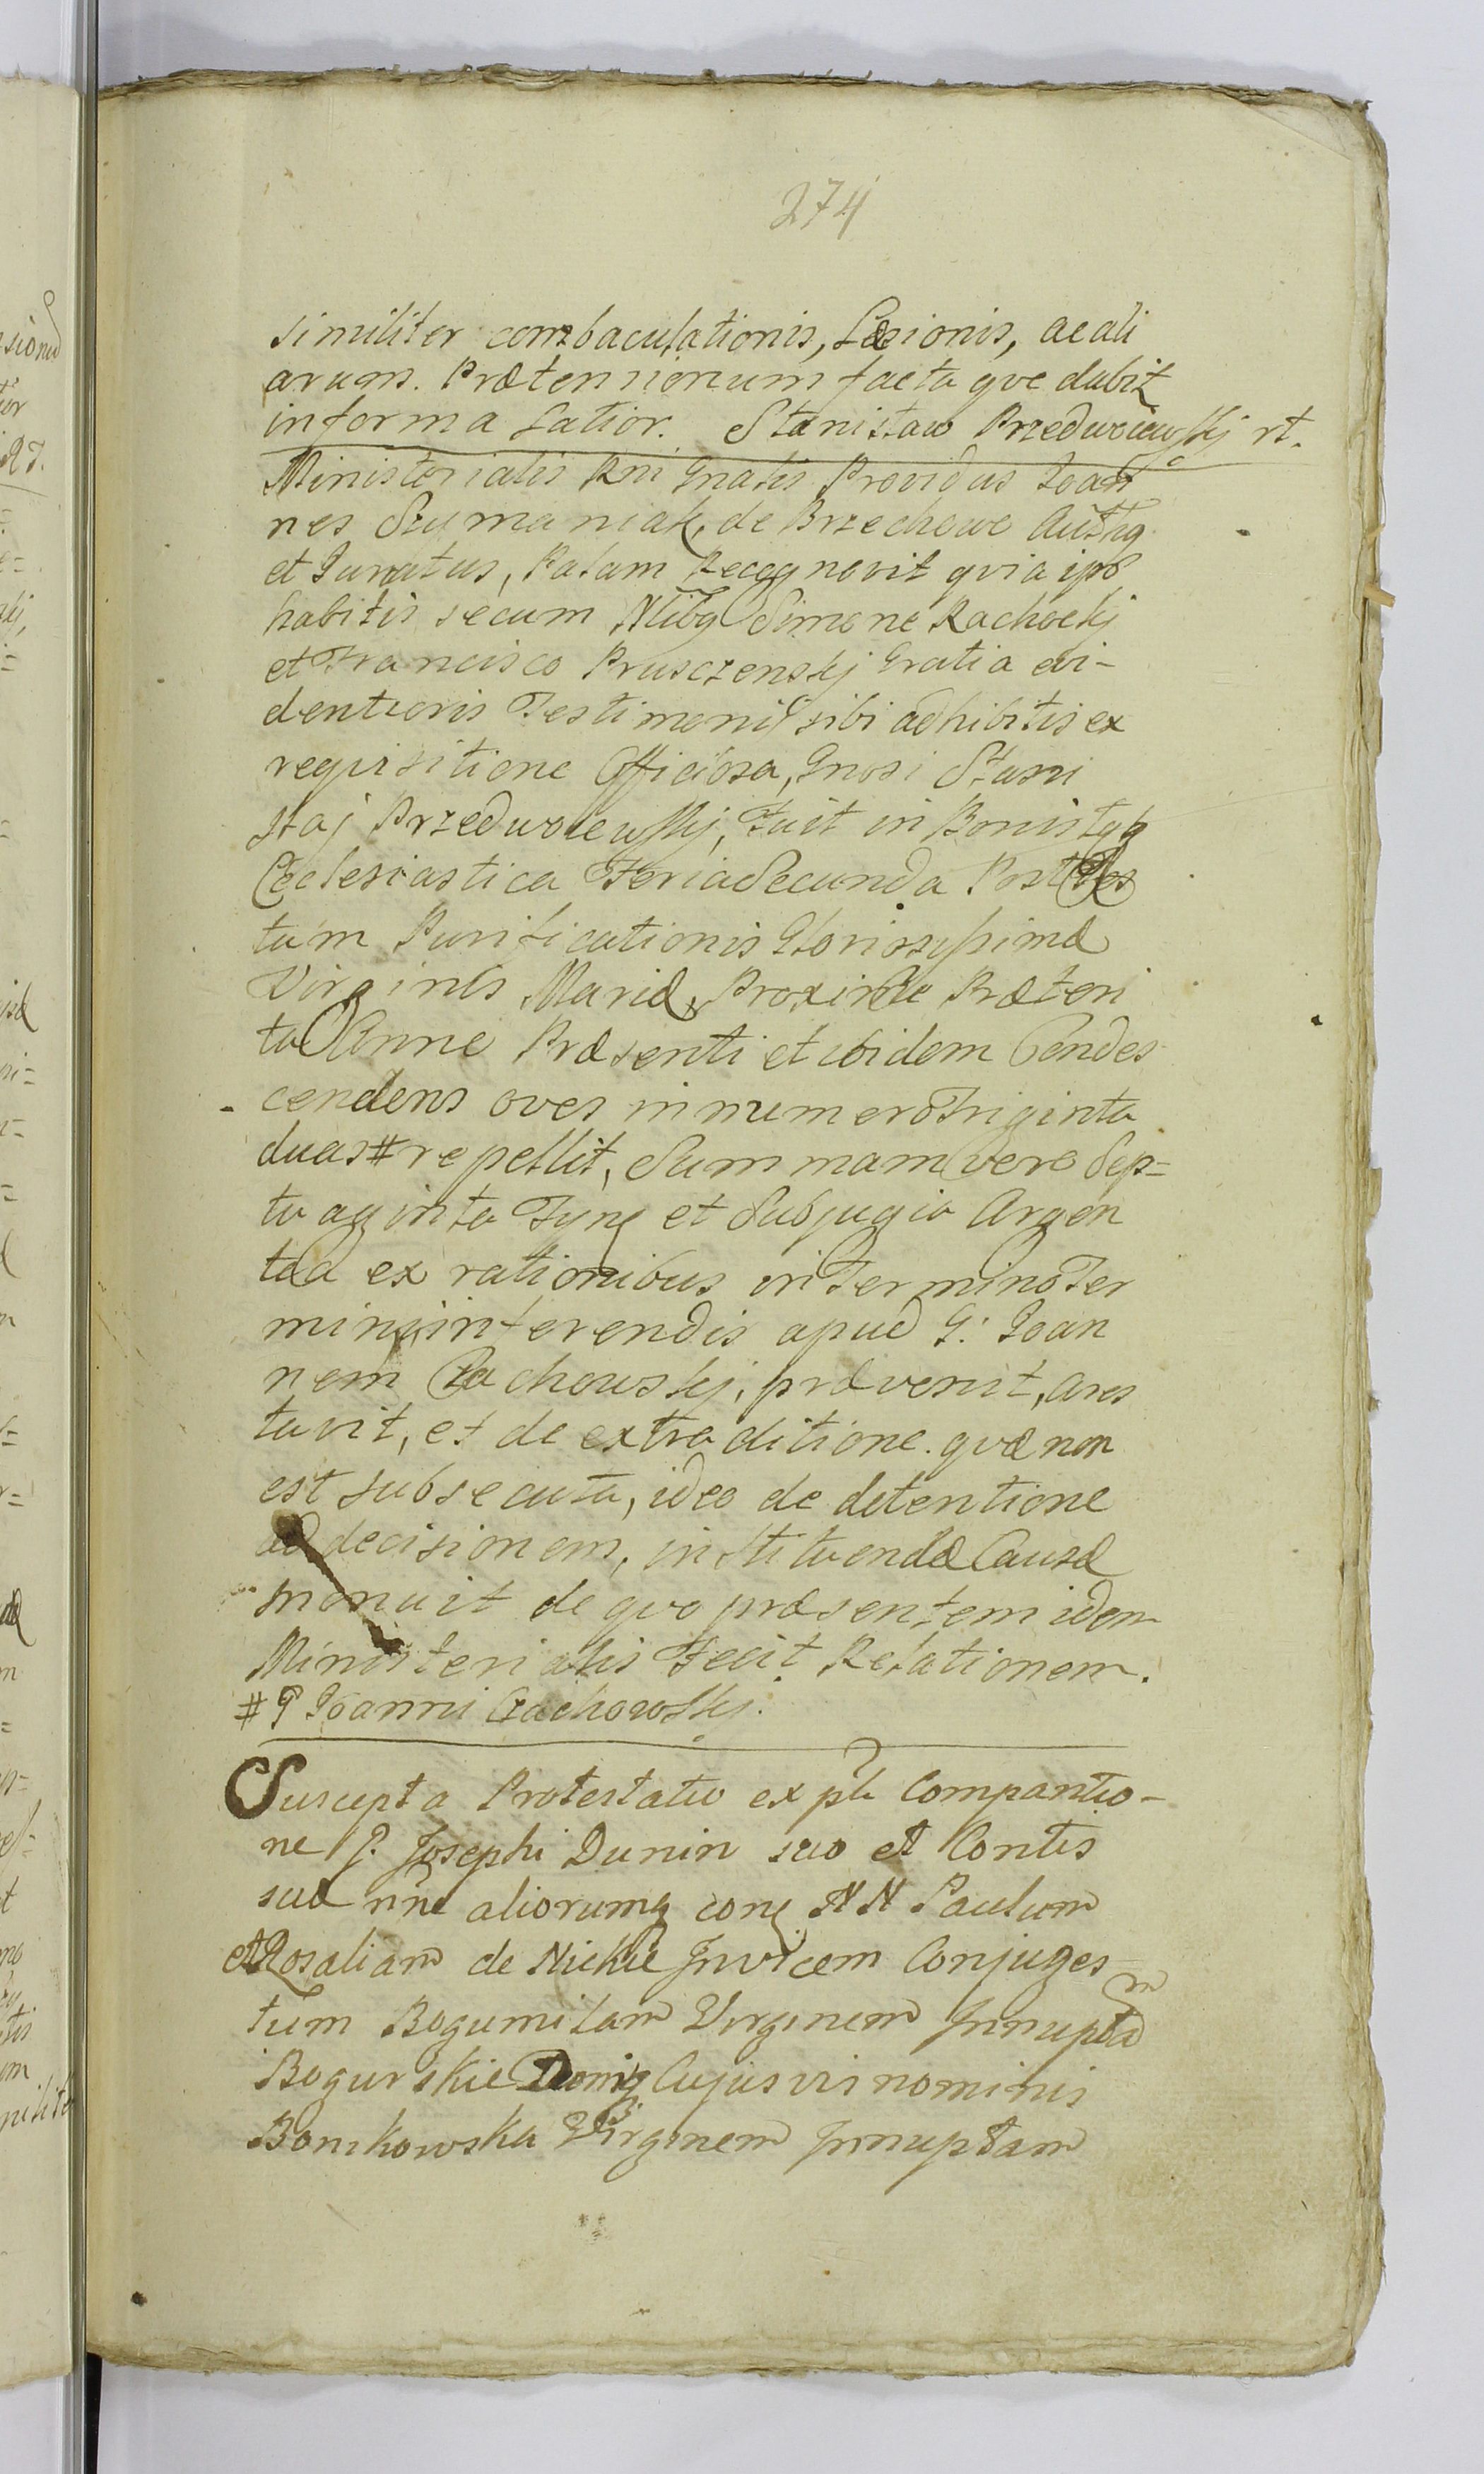 274
similiter combaculationis, Læsionis, ac ali
arum. Prætensionum facta qve dabit
informa Latior. Stanisław Przedwoiewskj rt.
Ministerialis Rni Gnalis Providus Joan
nes Szumaniak, de Brzechowo Autiq
et Juratus, Palam Recognovit qvia ipse
habitis secum Nlibq Simone Rachockj
et Francisco Prusczenskj Gratia evi-
dentioris Testimonij sibi adhibitis ex
reqvisitione Officiosa, Gnosi Stani
slaj Przedwoiewskj, Fuit in Bonis
Ecclesiastica Feria Secunda Post Fes
tum Purificationis Gloriosissimæ
Virginis Mariæ, Proxime Præteri
ta Anno Præsenti et ibidem Condes
cendens oves in numero Triginta
duas # repellit, Summam vero Sep=
tuaginta Tynf et Subjugia Argen
tea ex rationibus in Termino Ter
minis interendis apud G: Joan
nem Czachowskj, prævenit, ares
tavit, et de extraditione qvæ non
est subsecuta, ideo de detentione
ad decisionem, instituendæ Causæ
monuit de qvo præsentem idem
Ministerialis Fecit Relationem.
# G Joanni Czachowskj.
Suscepta Protestatio ex pte Comparitio-
ne G. Josephi Dunin suo et Contis
suæ nne aliorumq conę NN Paulum
et Rosaliam de Nickie Invicem Conjuges
tum Bogumilam Virginem Innuptam
Bogurskie Cujusvis nominis
Bonikowska Virginem Innuptam